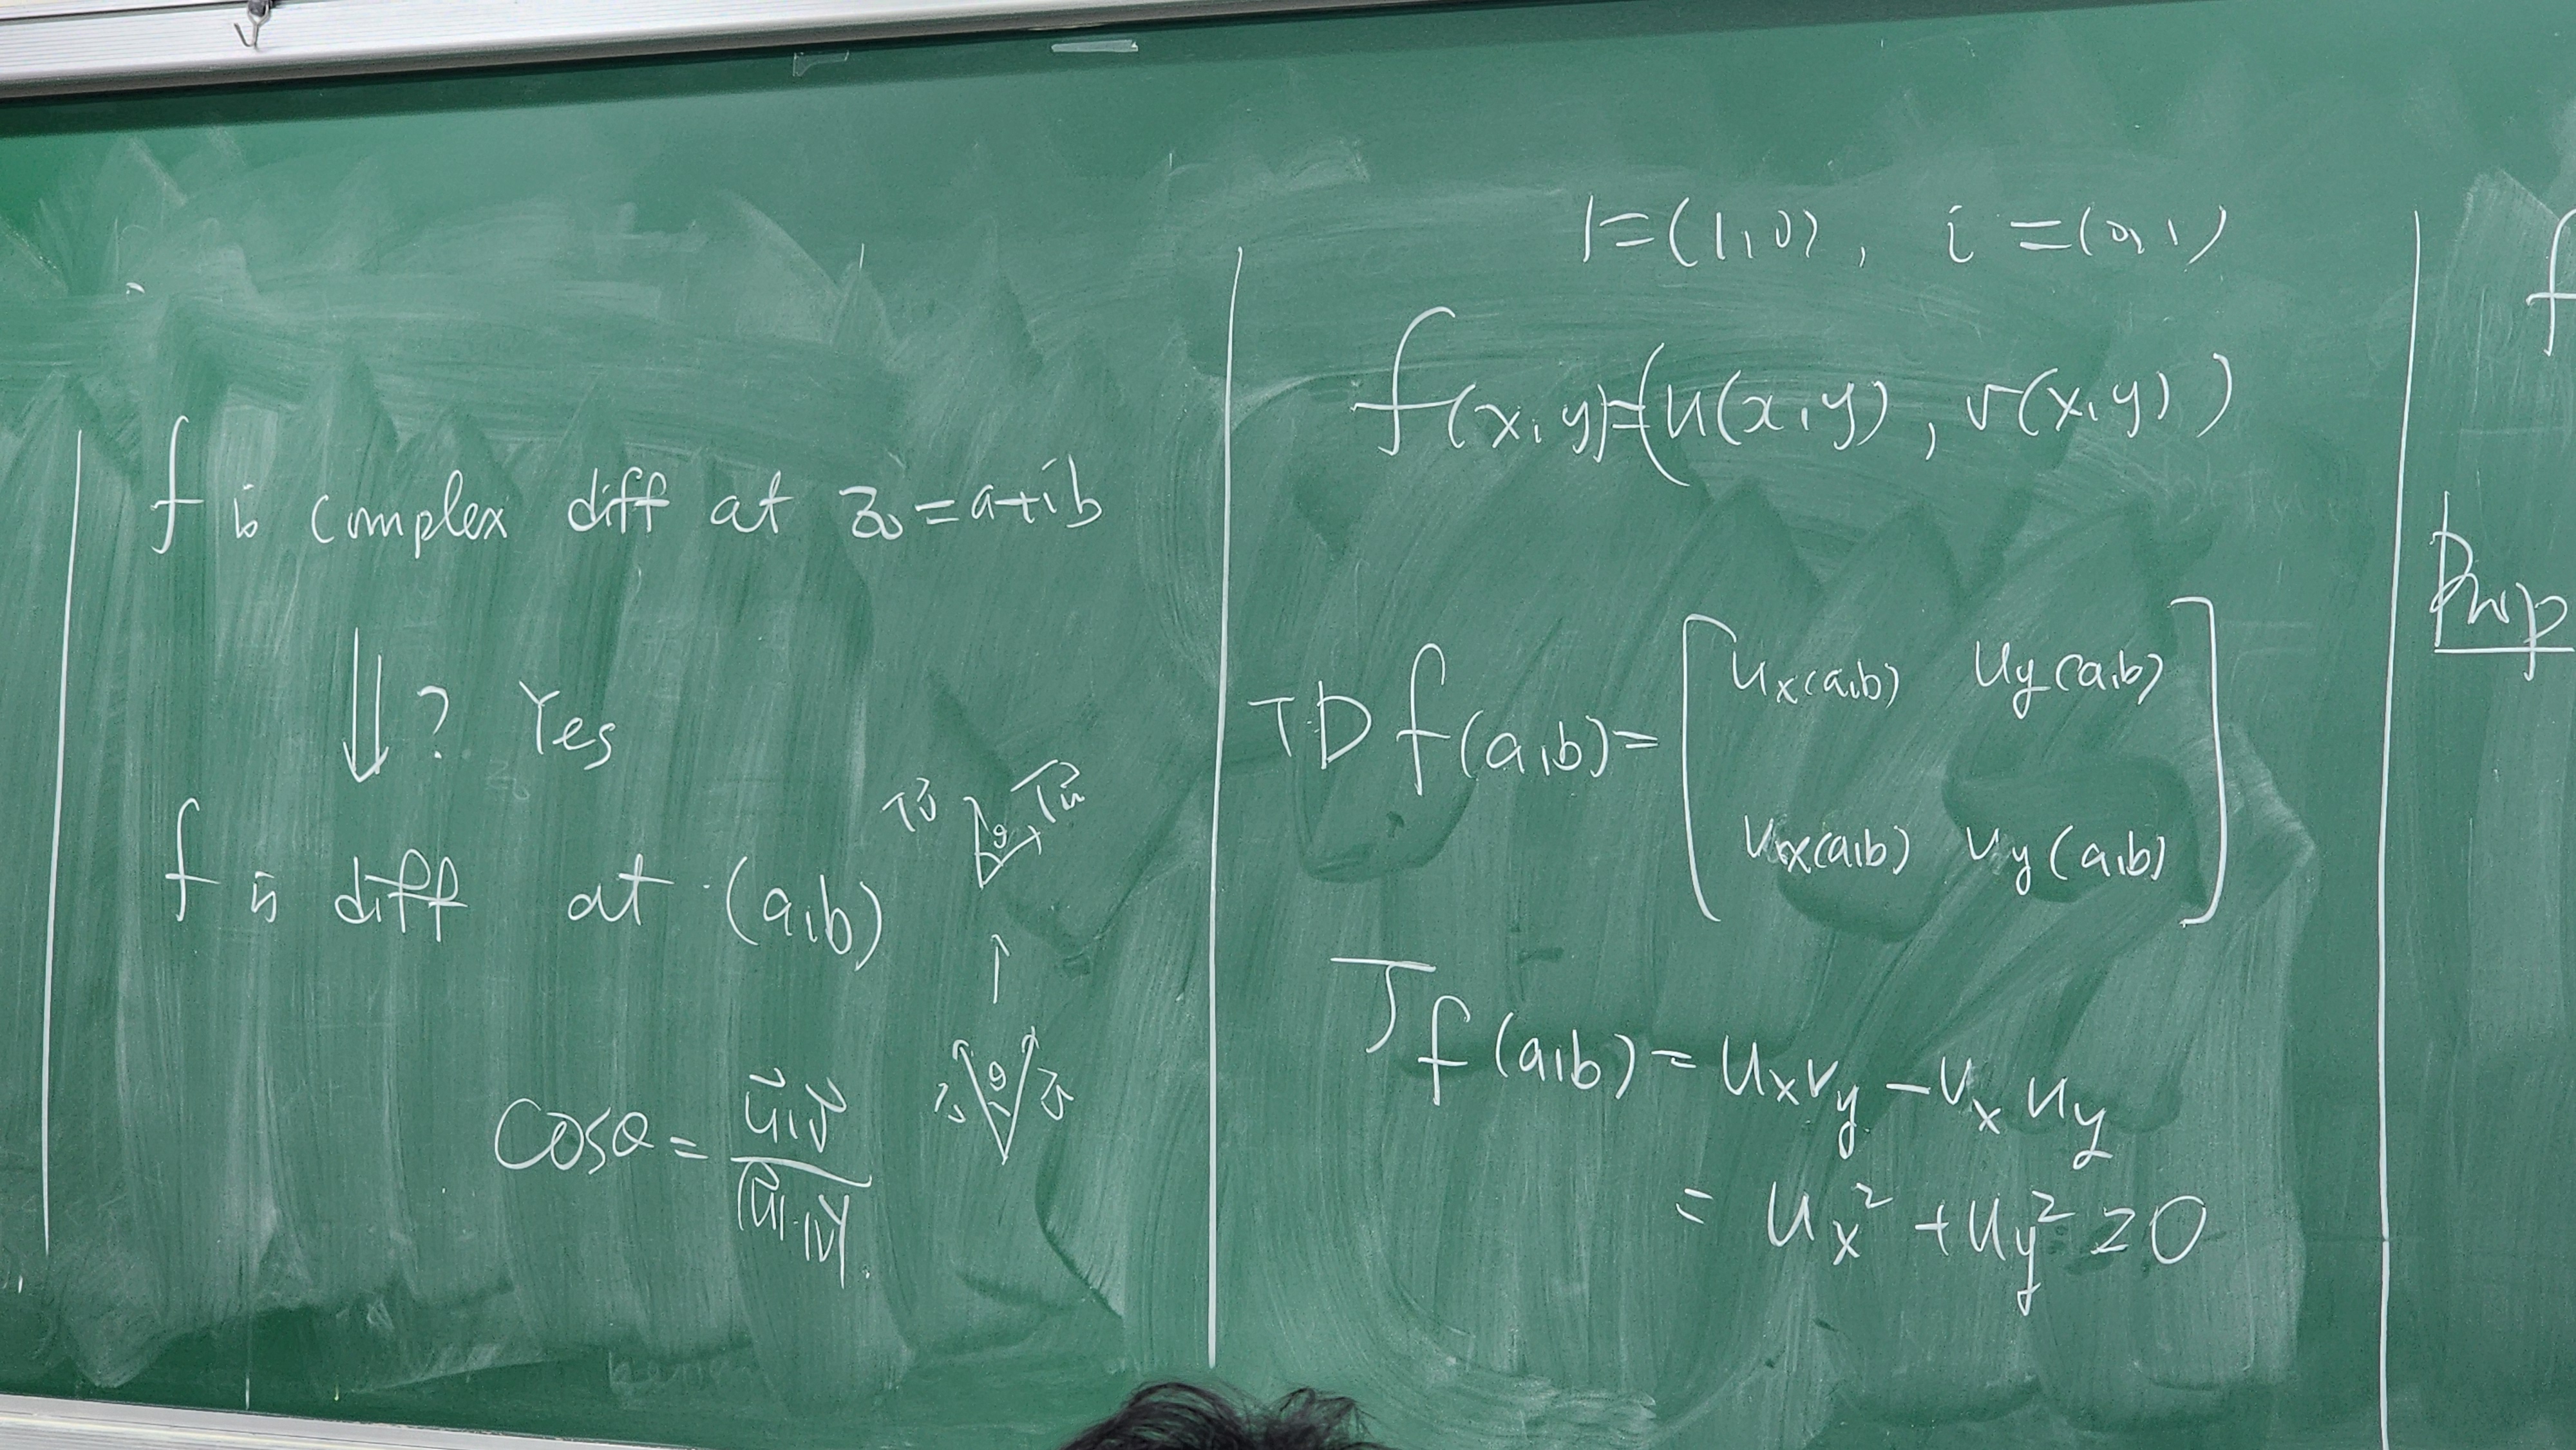 f is complex diff at z₀ = a+ib
⇓ ? Yes
f is diff at (a,b)
Tv⃗ θ Tu⃗
↑
v⃗ θ u⃗
cosθ = u⃗·v⃗ / |u⃗|·|v⃗|
1=(1,0), i =(0,1)
f(x,y)=(u(x,y), v(x,y))
TDf(a,b)= [ ux(a,b) uy(a,b)
vx(a,b) vy(a,b) ]
Jf(a,b) = uxvy − vxuy
= ux² + uy² ≥0
f
Prop